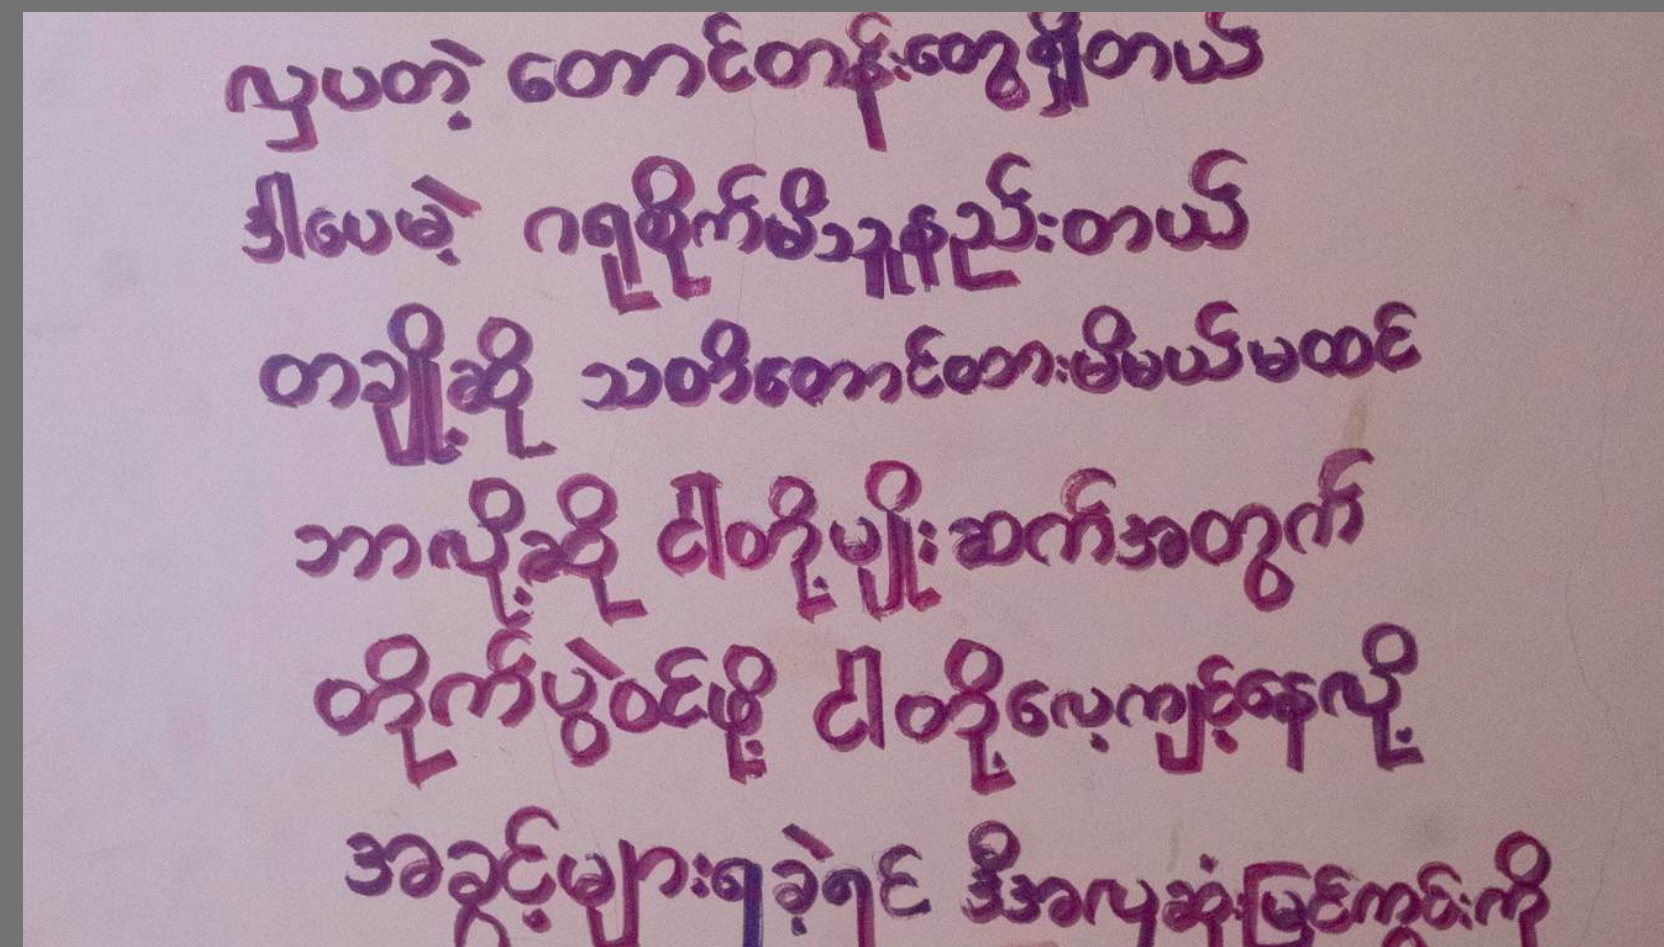 လှပတဲ့ တောင်တန်းတွေရှိတယ်
ဒါပေမဲ့ ဂရုစိုက်မိသူနည်းတယ်
တချို့ဆို သတိတောင်ထားမိမယ်မထင်
ဘာလို့ဆို ငါတို့မျိုးဆက်အတွက်
တိုက်ပွဲဝင်ဖို့ ငါတို့လေ့ကျင့်နေလို့
အခွင့်များရခဲ့ရင် ဒီအလှဆုံးမြင်ကွင်းကို